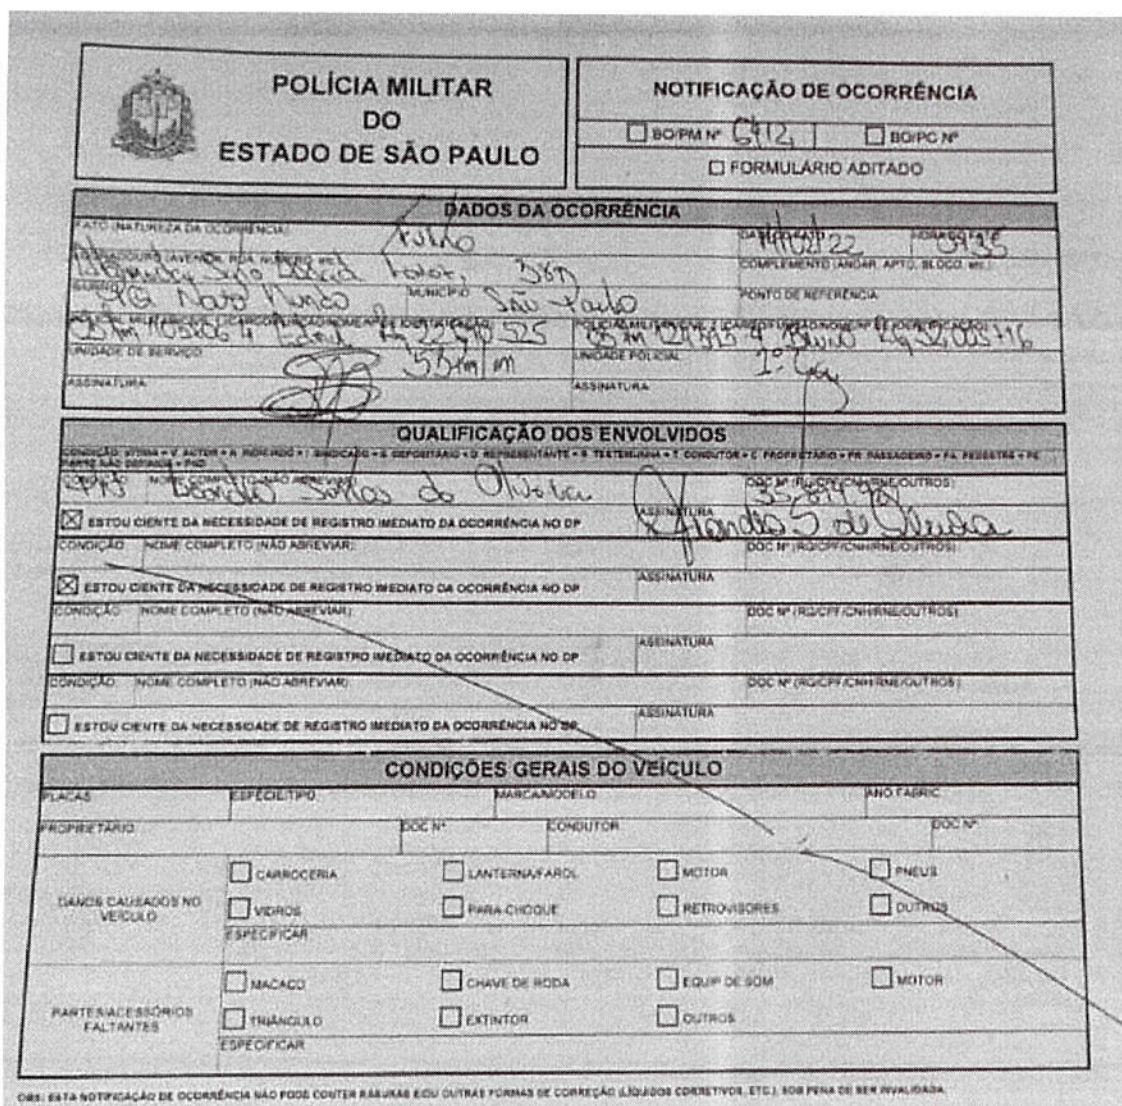 POLÍCIA MILITAR
DO
ESTADO DE SÃO PAULO
NOTIFICAÇÃO DE OCORRÊNCIA
BO/PM Nº 6912 BO/PC Nº
FORMULÁRIO ADITADO
DADOS DA OCORRÊNCIA
FATO (NATUREZA DA OCORRÊNCIA) Furto DATA DO FATO /02/22 HORA DO FATO
LOGRADOURO (AVENIDA, RUA, NÚMERO, etc.) COMPLEMENTO (ANDAR, APTO, BLOCO, etc.)
BAIRRO Novo Mundo MUNICÍPIO São Paulo PONTO DE REFERÊNCIA
UNIDADE DE SERVIÇO UNIDADE POLICIAL
ASSINATURA ASSINATURA
QUALIFICAÇÃO DOS ENVOLVIDOS
CONDIÇÃO: VÍTIMA = V, AUTOR = A, INDICIADO = I, SINDICADO = S, DEPOSITÁRIO = D, REPRESENTANTE = R, TESTEMUNHA = T, CONDUTOR = C, PROPRIETÁRIO = PR, PASSAGEIRO = PA, PEDESTRE = PE,
PARTE NÃO DEFINIDA = PND
CONDIÇÃO NOME COMPLETO (NÃO ABREVIAR) Santos de Oliveira DOC Nº (RG/CPF/CNH/RNE/OUTROS)
ESTOU CIENTE DA NECESSIDADE DE REGISTRO IMEDIATO DA OCORRÊNCIA NO DP ASSINATURA S de Oliveira
CONDIÇÃO NOME COMPLETO (NÃO ABREVIAR) DOC Nº (RG/CPF/CNH/RNE/OUTROS)
ESTOU CIENTE DA NECESSIDADE DE REGISTRO IMEDIATO DA OCORRÊNCIA NO DP ASSINATURA
CONDIÇÃO NOME COMPLETO (NÃO ABREVIAR) DOC Nº (RG/CPF/CNH/RNE/OUTROS)
ESTOU CIENTE DA NECESSIDADE DE REGISTRO IMEDIATO DA OCORRÊNCIA NO DP ASSINATURA
CONDIÇÃO NOME COMPLETO (NÃO ABREVIAR) DOC Nº (RG/CPF/CNH/RNE/OUTROS)
ESTOU CIENTE DA NECESSIDADE DE REGISTRO IMEDIATO DA OCORRÊNCIA NO DP ASSINATURA
CONDIÇÕES GERAIS DO VEÍCULO
PLACAS ESPÉCIE/TIPO MARCA/MODELO ANO FABRIC.
PROPRIETÁRIO DOC Nº CONDUTOR DOC Nº
DANOS CAUSADOS NO VEÍCULO
CARROCERIA LANTERNA/FAROL MOTOR PNEUS
VIDROS PARA-CHOQUE RETROVISORES OUTROS
ESPECIFICAR
PARTES/ACESSÓRIOS FALTANTES
MACACO CHAVE DE RODA EQUIP DE SOM MOTOR
TRIÂNGULO EXTINTOR OUTROS
ESPECIFICAR
OBS: ESTA NOTIFICAÇÃO DE OCORRÊNCIA NÃO PODE CONTER RASURAS E/OU OUTRAS FORMAS DE CORREÇÃO (LÍQUIDOS CORRETIVOS, ETC.), SOB PENA DE SER INVALIDADA